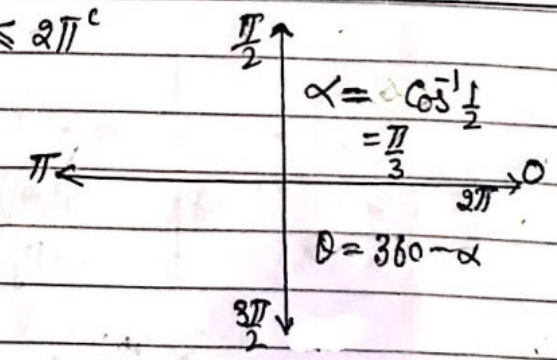 ≤ 2π^c
π/2
α = Cos⁻¹ 1/2
= π/3
π
0
2π
θ = 360 - α
3π/2